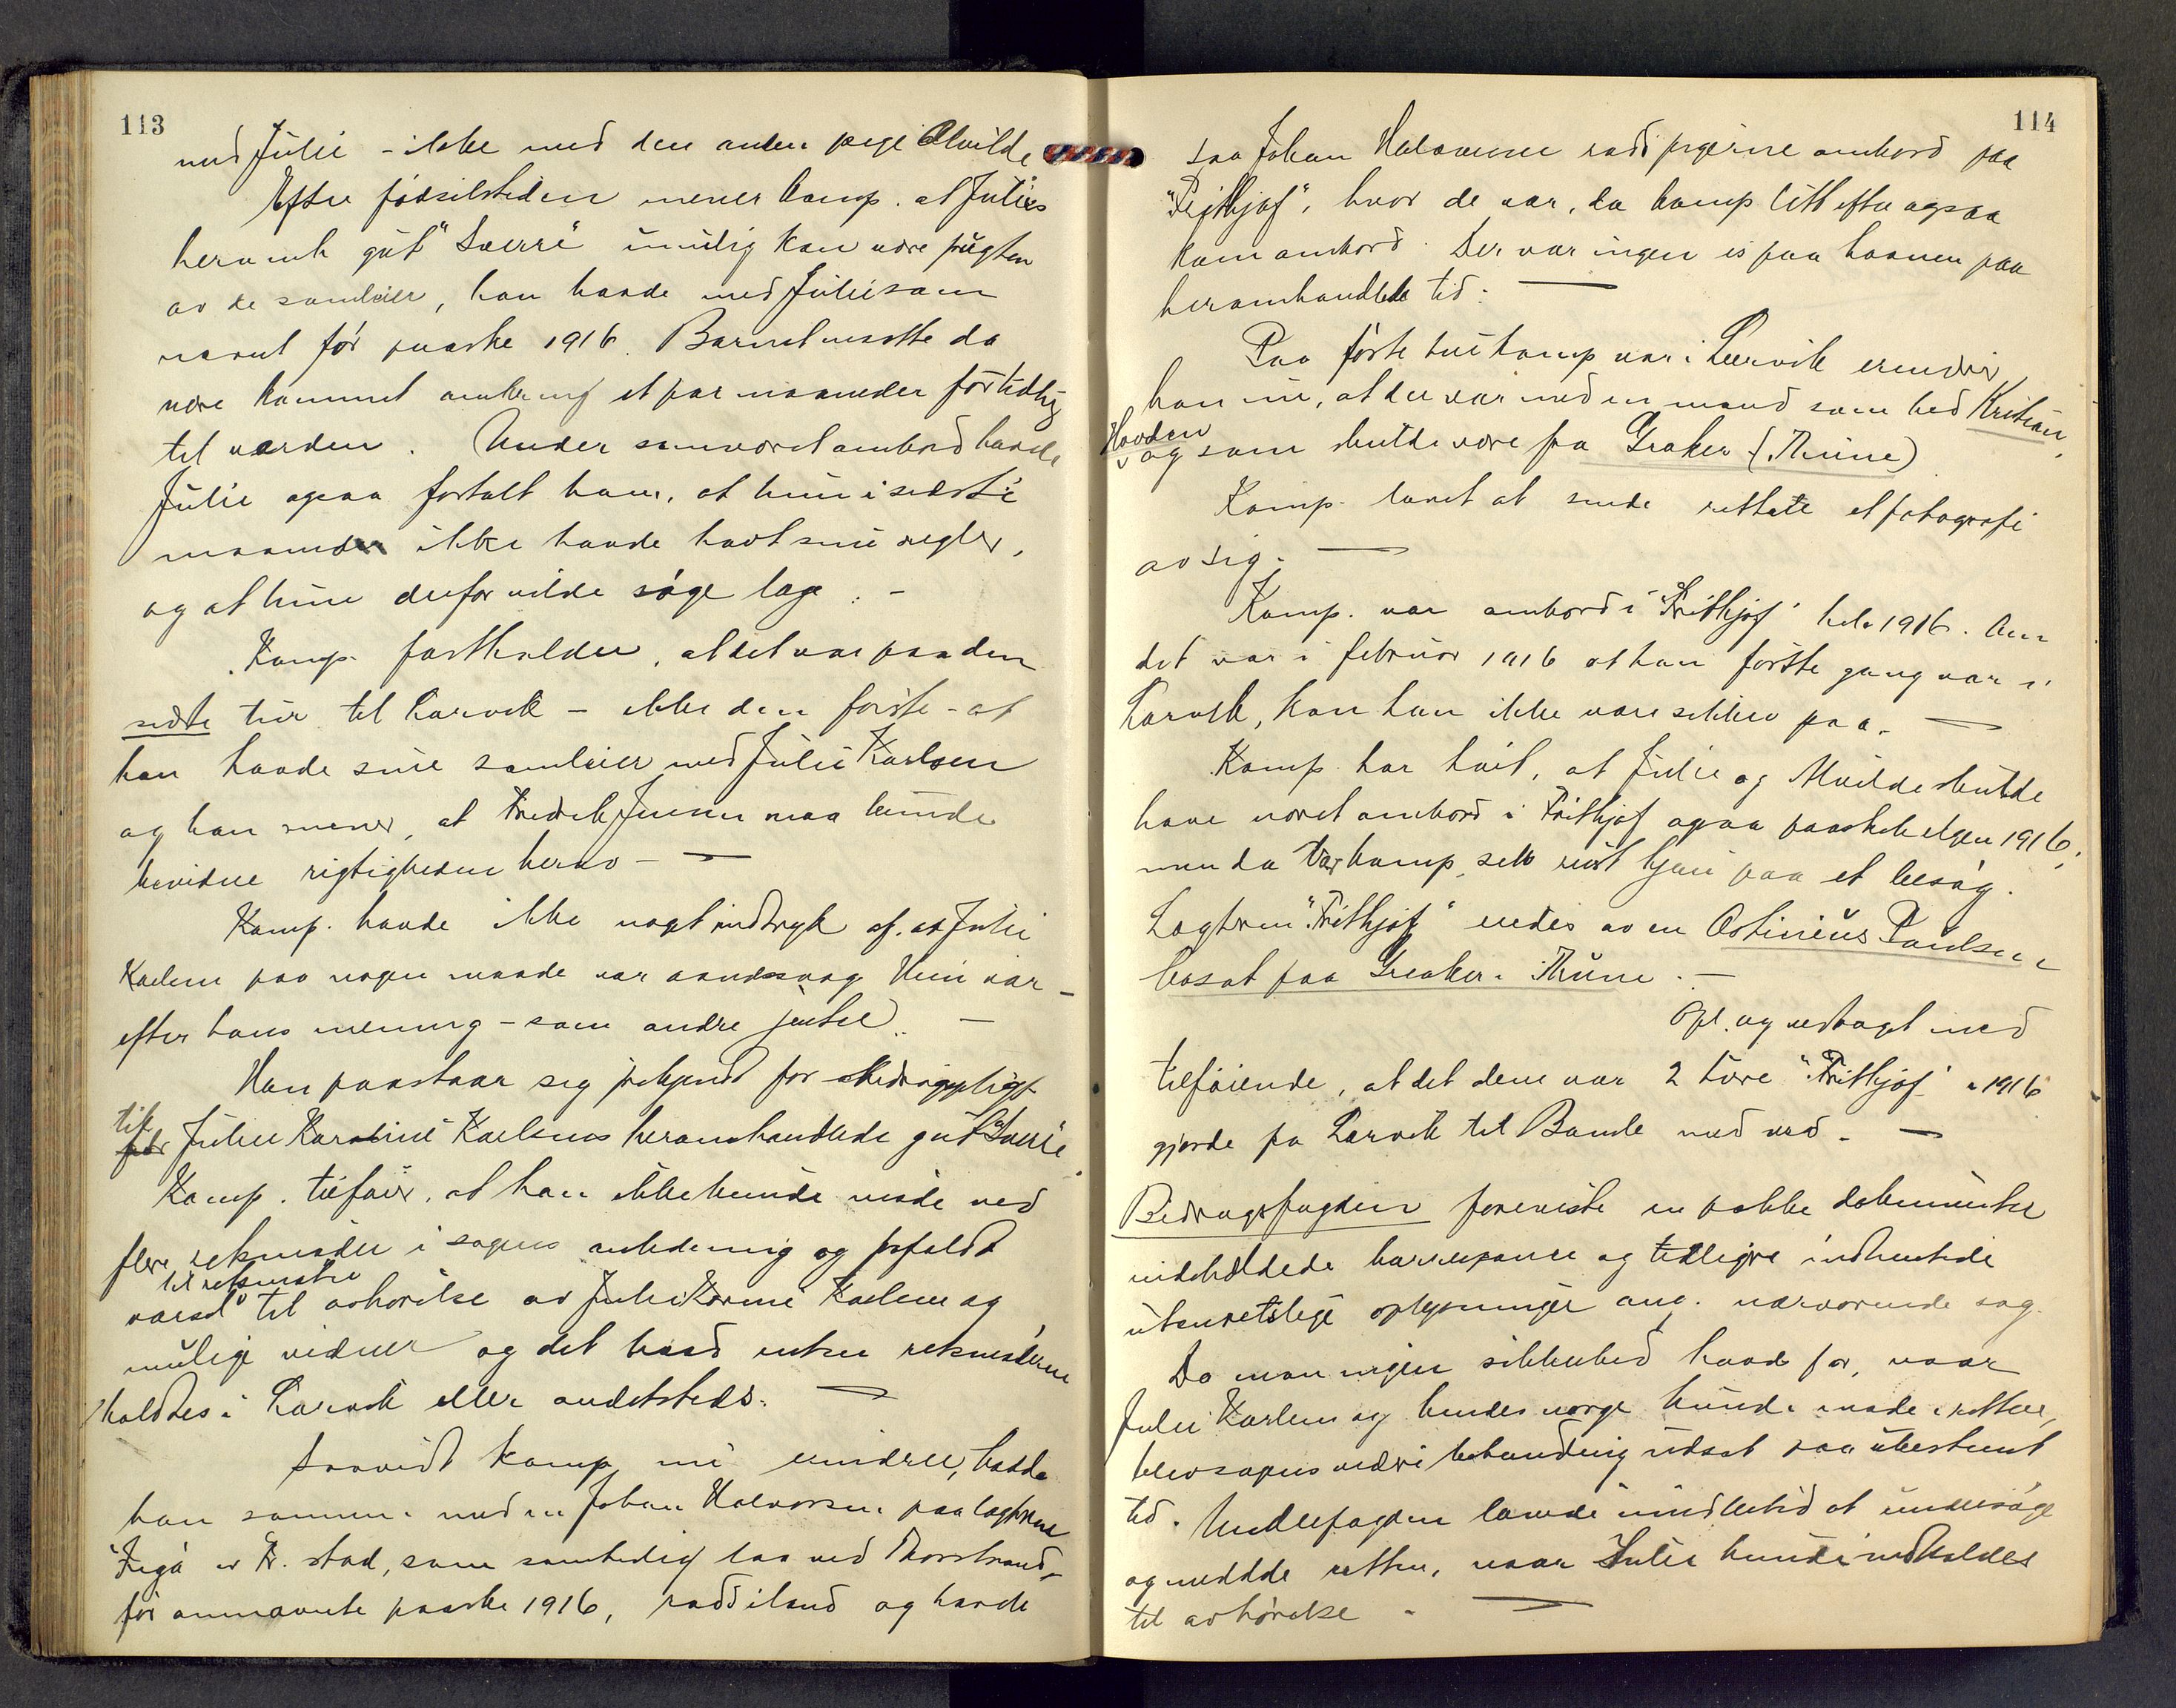 113
med Julie - ikke med den anden pige Alvilde
Efter fødselstiden mener komp. at Julies
heromh gut "Sverre" umulig kan være frugten
av de samleier, han havde med Julie som
nævnt før paaske 1916. Barnet maatte da
være kommet omkring et par maaneder for tidlig
til verden. Under samværet ombord havde
Julie ogsaa fortalt ham, at hun i sidste
maaneder ikke havde havt sine regler,
og at hun derfor vilde søge læge. -
Komp. fastholder, at det var paa den
sidste tur til Larvik - ikke den første - at
han havde sine samleier med Julie Karlsen
og han mener, at Fredrik Jensen maa kunde
bevidne rigtigheden herav -
Komp. havde ikke nogt indtryk af, at Julie
Karlsen paa nogen maade var aandssvag. Hun var -
efter hans mening - som andre jenter. -
Han paastaar sig frikjendt for bidragspligt
til
for Julie Karoline Karlsens heromhandlede gut "Sverre".
Komp. tilføier, at han ikke kunde møde ved
flere retsmøder i sagens anledning og frafaldt
til retsmøte
varsel til avhørelse av Julie Karine Karlsen og
mulige vidner og det hvad enten retsmøderne
holdtes i Larvik eller andetsteds. -
Saavidt komp. nu erindrer, hadde
han sammen med en Johan Halvorsen paa lagtrene
"Freya" av Fr.stad, som samtidig laa ved Thorstrand,
før omnævnte paaske 1916, rodd iland og havde
114
saa Johan Halvorsen rodd pigerne ombord paa
"Frithjof", hvor de var, da komp litt efter ogsaa
kom ombord. Der var ingen is paa havnen paa
heromhandlede tid. -
Paa første tur komp var i Larvik erindrer
han nu, at der var med en mand som hed Kristian
Hovden
og som skulde være fra Greaker (i Thune)
Komp. lovet at sende retten et fotografi
av sig. -
Komp. var ombord i "Frithjof" hele 1916. Om
det var i februar 1916 at han første gang var i
Larvik, kan han ikke være sikker paa. -
Komp har hørt, at Julie og Alvilde skulde
have været ombord i Frithjof ogsaa paaskehelgen 1916,
men da var komp. selv reist hjem paa et besøg.
Lagtren "Frithjof" eiedes av en Ostinius Paulsen
bosat paa Greaker i Thune. -
Opl. og vedtaget med
tilføiende, at det dene var 2 ture "Frithjof" i 1916
gjorde fra Larvik til Bamle med ved. -
Bidragsfogden foreviste en pakke dokumenter
indeholdede korrespance og tidligere indhentede
utenretslige oplysninger ang. nærværende sag.
Da man ingen sikkerhed havde for, naar
Julie Karlsen og hendes verge kunde møde i retten,
blev sagens videre behandling udsat paa ubestemt
tid. Underfogden lovede imidlertid at undersøge
og meddele retten, naar Julie kunde indkaldes
til avhørelse. -